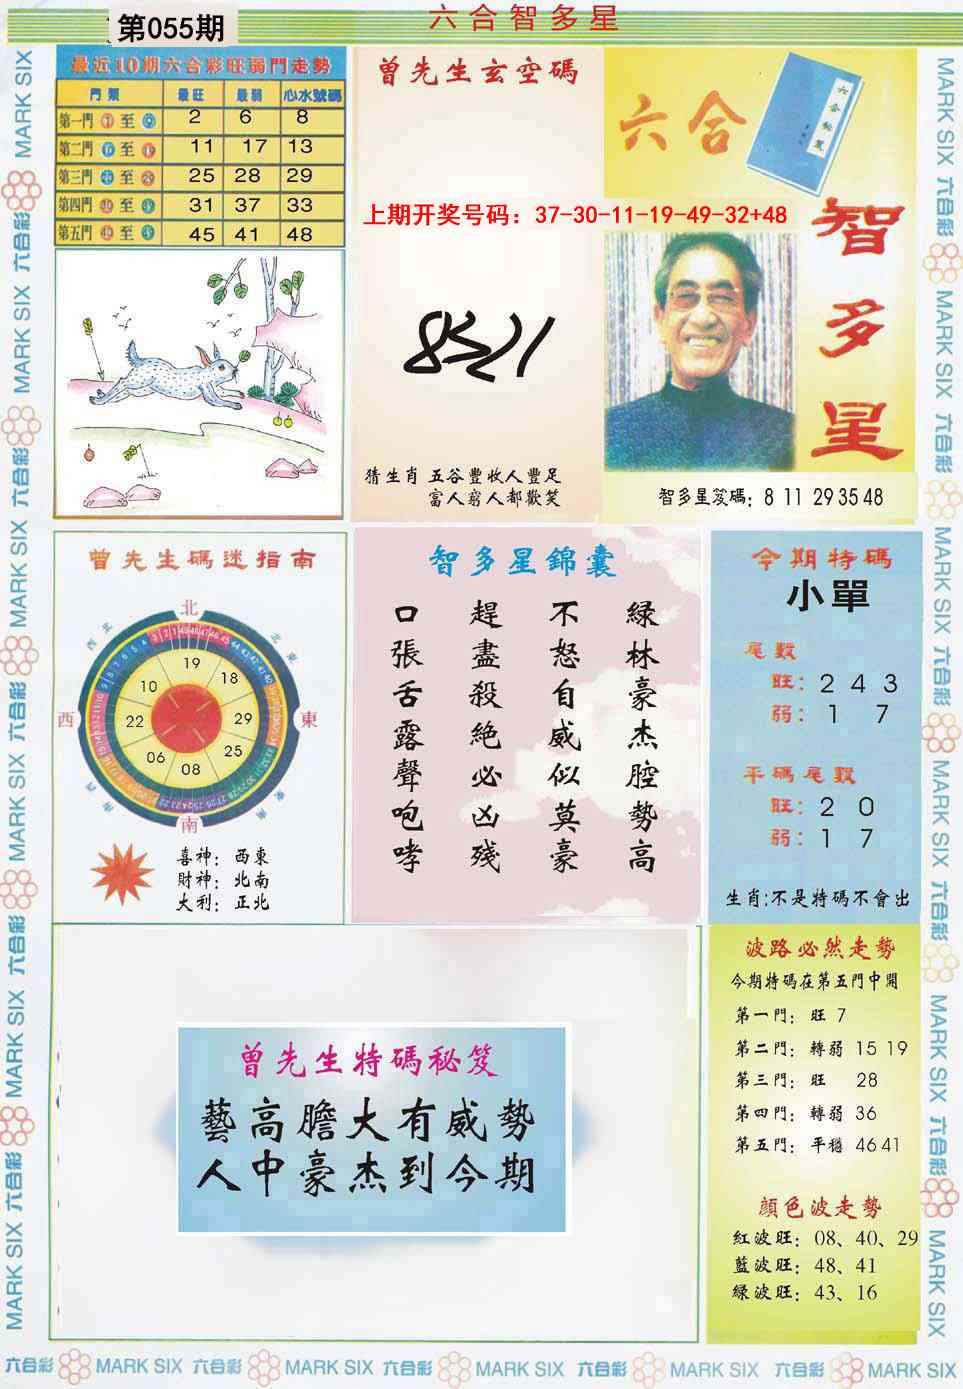 六合智多星
第055期
最近10期六合彩旺弱門走勢
門類 最旺 最弱 心水號碼
第一門 至 2 6 8
第二門 至 11 17 13
第三門 至 25 28 29
第四門 至 31 37 33
第五門 至 45 41 48
曾先生玄空碼
上期开奖号码：37-30-11-19-49-32+48
猜生肖 五谷豐收人豐足
富人窮人都歡笑
六合
智多星
智多星笈碼: 8 11 29 35 48
曾先生碼迷指南
北
西北
東北
西
東
西南
東南
南
19
18
29
25
08
06
22
10
喜神: 西東
財神: 北南
大利: 正北
智多星錦囊
綠林豪杰腔勢高
不怒自威似莫豪
趕盡殺絕必凶殘
口張舌露聲咆哮
今期特碼
小單
尾數
旺: 2 4 3
弱: 1 7
平碼尾數
旺: 2 0
弱: 1 7
生肖:不是特碼不會出
曾先生特碼秘笈
藝高膽大有威勢
人中豪杰到今期
波路必然走勢
今期特碼在第五門中開
第一門: 旺 7
第二門: 轉弱 15 19
第三門: 旺 28
第四門: 轉弱 36
第五門: 平穩 46 41
顔色波走勢
紅波旺: 08、40、29
藍波旺: 48、41
綠波旺: 43、16
MARK SIX 六合彩 MARK SIX 六合彩 MARK SIX 六合彩 MARK SIX 六合彩 MARK SIX 六合彩 MARK SIX
MARK SIX 六合彩 MARK SIX 六合彩 MARK SIX 六合彩 MARK SIX 六合彩 MARK SIX 六合彩 MARK SIX
六合彩 MARK SIX 六合彩 MARK SIX 六合彩 MARK SIX 六合彩 MARK SIX 六合彩 MARK SIX